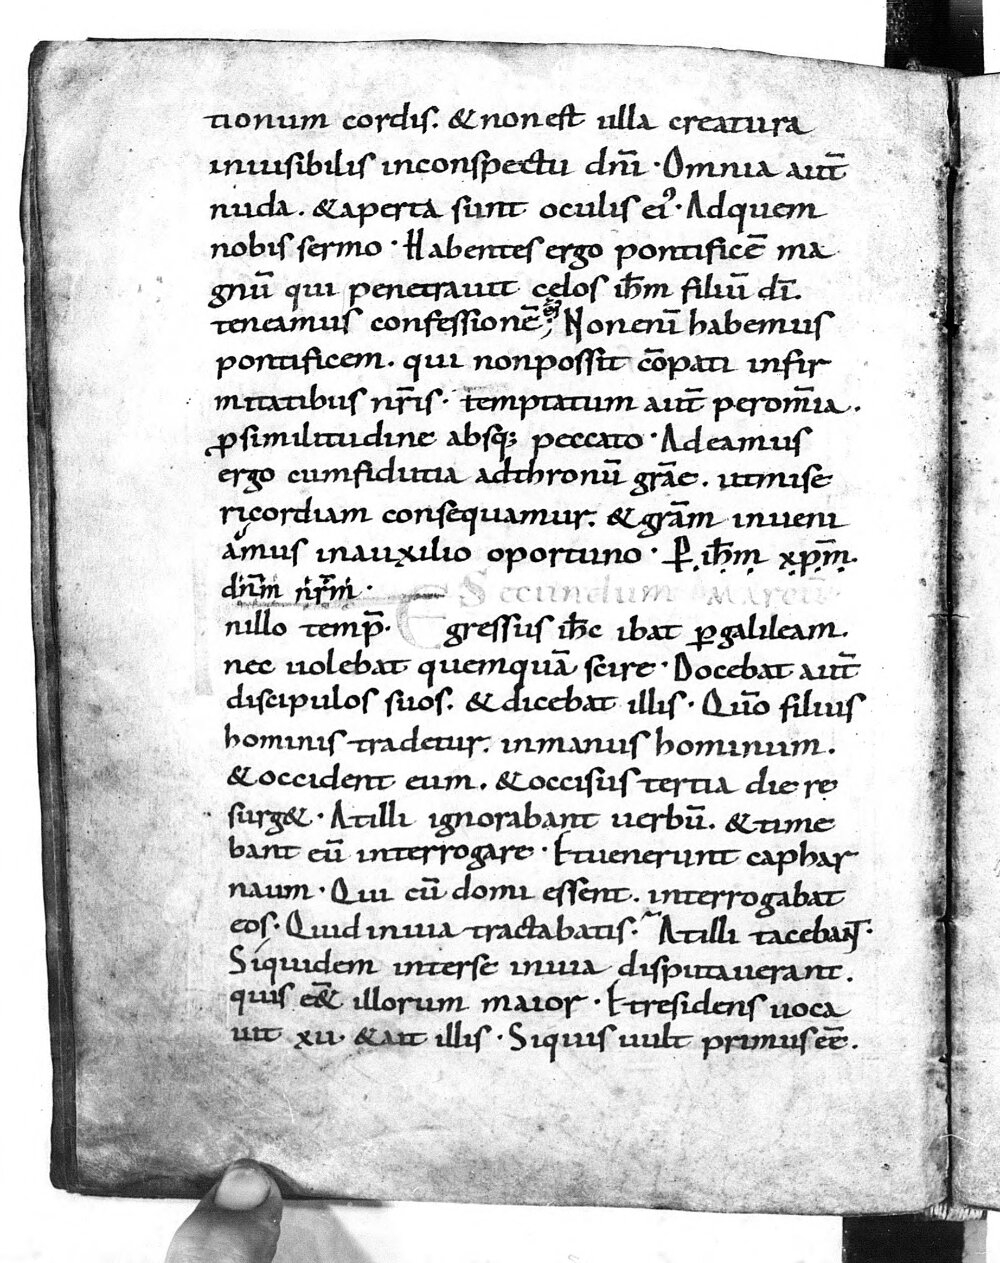 tionum cordis. & non est ulla creatura
inuisibilis inconspectu dnī · Omnia aut̄
nuda. & aperta sunt oculis ei᾿ · Adquem
nobis sermo · Habentes ergo pontificē ma
gnū qui penetrauit cęlos ih̄m filiū dī.
teneamus confessionē; Non enī habemus
pontificem. qui nonpossit cōpati infir
mitatibus nr̄is · temptatum aut̄ per om̄ia.
ꝓ similitudine absq; peccato · Adeamus
ergo cumfiducia adthronū grāe. utmise
ricordiam consequamur. & grām inueni
amus inauxilio oportuno · P. ih̄m xp̄m.
dn̄m nr̄m ·
Secundum Marcū
nillo temp̄. Egressus ih̄c ibat ꝑ galileam.
nec uolebat quemquā scire · Docebat aut̄
discipulos suos. & dicebat illis · Qm̄o filius
hominis tradetur. inmanus hominum.
& occident eum. & occisus tertia die re
surg& · At illi ignorabant uerbū. & time
bant eū interrogare · Et uenerunt caphar
naum · Qui cū domi essent. interrogabat
eos · Quid inuia tractabatis · At illi tacebant ·
Siquidem interse inuia disputauerant.
quis eēt illorum maior · Et residens uoca
uit xii · & ait illis · Siquis uult primus eē.